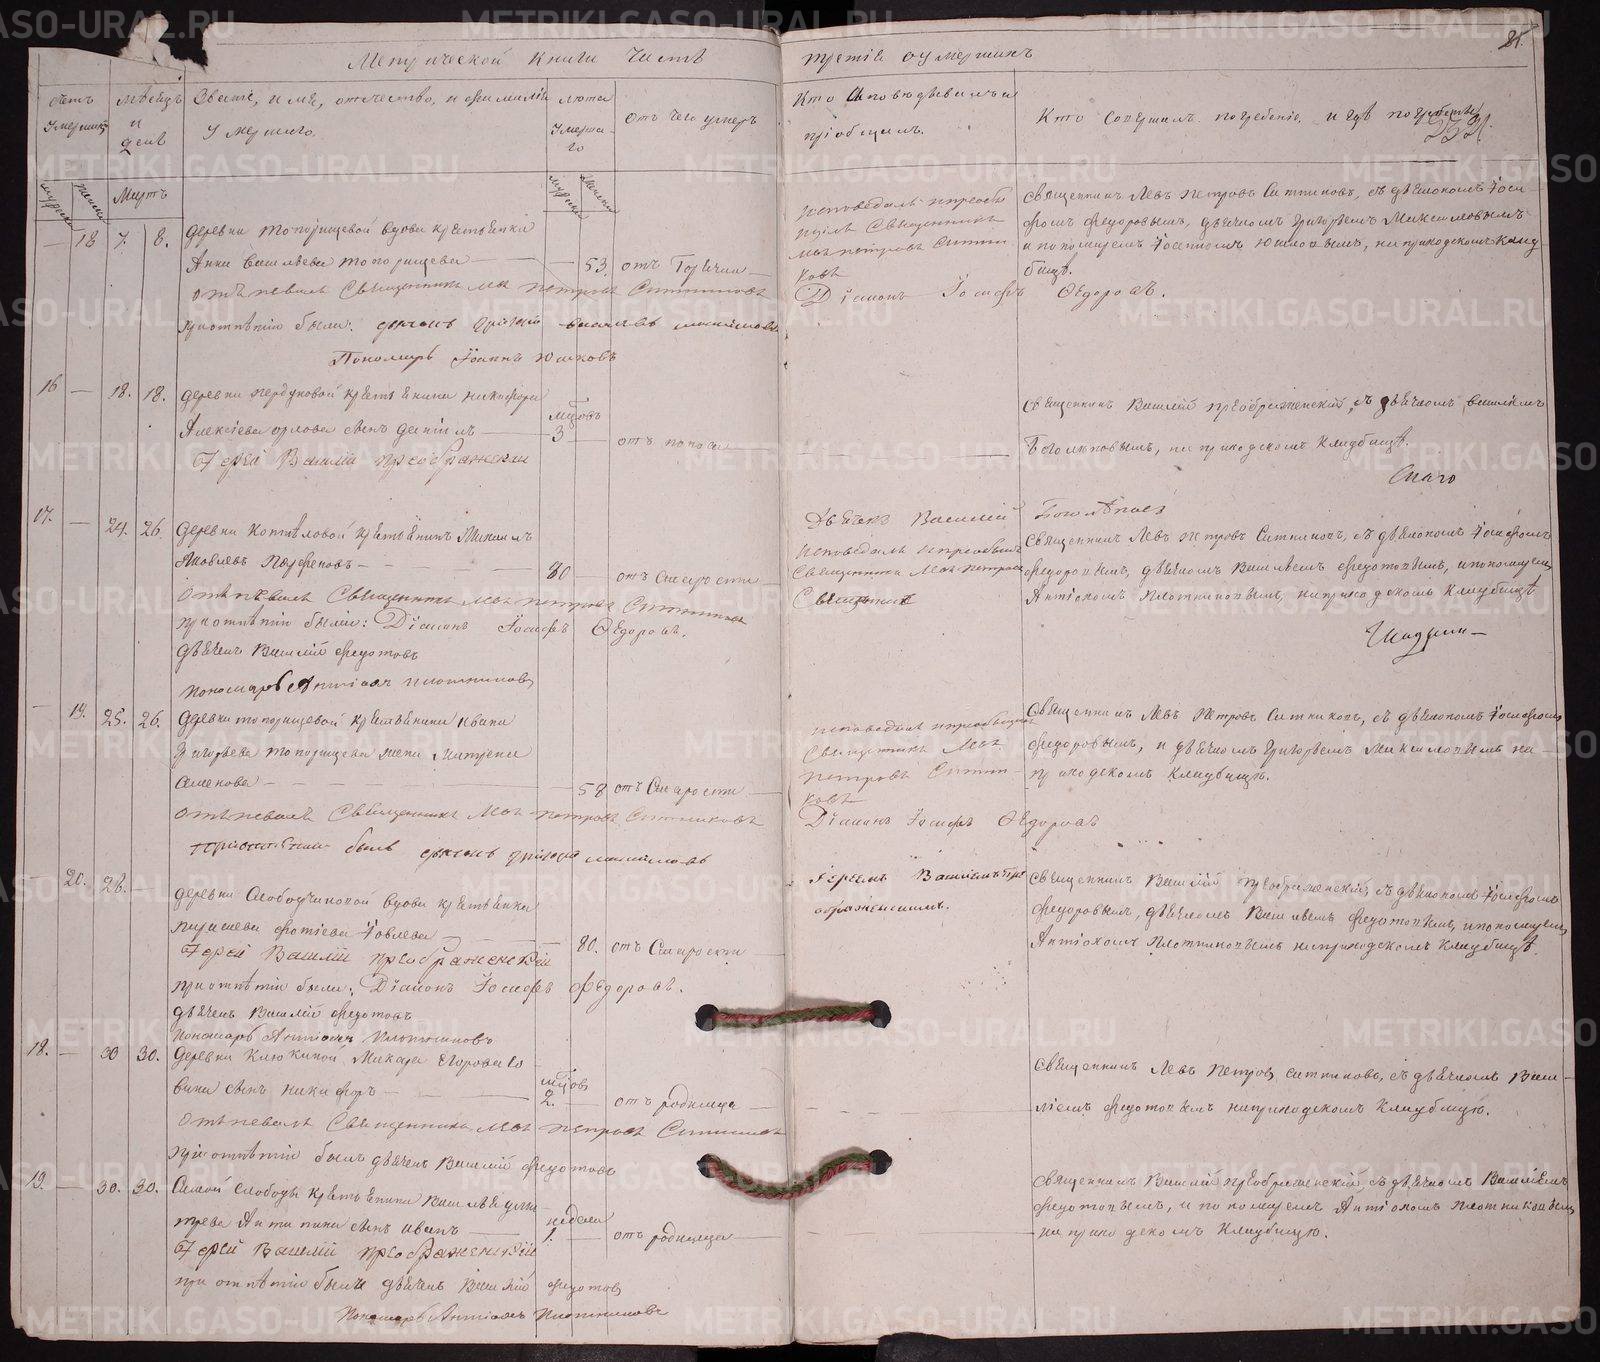 Метрической книги часть
третія о умершихъ
85.
Счетъ умершихъ
мѣсяцъ и день
Званіе, имя, отчество, и фамилія умершаго.
лѣта умерша-го
отъ чего умеръ
Кто исповѣдывалъ и пріобщалъ.
Кто совершалъ погребеніе и гдѣ погребены
мужска
женска
Мартъ
мужска
женска
— 18 7. 8. деревни Топорищевой вдова крестьянка
Анна Васильева Топорищева — 53. отъ Горячки
отпѣвалъ Священникъ Левъ Петровъ Ситниковъ
приотпѣтіи были: дьячекъ Григорій
Пономарь Іоаннъ Юшковъ
исповѣдалъ и пріобщилъ Священникъ Левъ Петровъ Ситниковъ
Діаконъ Іосифъ Ѳедоровъ.
Священникъ Левъ Петровъ Ситниковъ, съ дьякономъ Іоси-
фомъ Федоровымъ, дьячкомъ Григорьемъ Максимовымъ
и пономаремъ Іоанномъ Юшковымъ, на приходскомъ клад-
бищѣ.
16 — 18. 18. деревни крестьянина Никифора
Алексіева Орлова сынъ Даніилъ — 3 — отъ поноса
Іерей Василій Преображенскій
Священникъ Василій Преображенскій, съ дьячкомъ Василіемъ
Боголѣповымъ, на приходскомъ кладбищѣ.
17. — 24. 26. Деревни Коптѣловой крестьянинъ Михаилъ
Яковлевъ Парфеновъ — 80 отъ Старости
Отпѣвалъ Священникъ Левъ Петровъ Ситниковъ
приотпѣтіи были: Діаконъ Іосифъ Ѳедоровъ.
дьячекъ Василій Федотовъ
пономарь Антіохъ Плотниковъ
Дьячекъ Василій Боголѣповъ
исповѣдалъ и пріобщилъ
Священникъ Левъ Петровъ
Священникъ Левъ Петровъ Ситниковъ, съ дьякономъ Іосифомъ
Федоровымъ, дьячкомъ Васильемъ Федотовымъ, и пономаремъ
Антіохомъ Плотниковымъ, на приходскомъ кладбищѣ
— 19. 25. 26. Деревни Топорищевой крестьянина Ивана
Григорьева Топорищева жена Матрена
Семенова — 58 отъ Старости
отпѣвалъ Священникъ Левъ Петровъ Ситниковъ
приотпѣтіи былъ дьячекъ Григорій Максимовъ
исповѣдалъ и пріобщилъ
Священникъ Левъ
Петровъ Ситни-
ковъ
Діаконъ Іосифъ Ѳедоровъ
Священникъ Левъ Петровъ Ситниковъ, съ дьякономъ Іосифомъ
Федоровымъ, и дьячкомъ Григорьемъ Максимовымъ на
приходскомъ кладбищѣ.
— 20. 28. — деревни вдова крестьянка
Фотіева Іовлева — 80. отъ Старости
Іерей Василій Преображенскій
приотпѣтіи были: Діаконъ Іосифъ Ѳедоровъ.
дьячекъ Василій Федотовъ
пономарь Антіохъ Плотниковъ
Іереемъ Василіемъ Пре-
ображенскимъ.
Священникъ Василій Преображенскій, съ дьякономъ Іосифомъ
Федоровымъ, дьячкомъ Васильемъ Федотовымъ, и пономаремъ
Антіохомъ Плотниковымъ на приходскомъ кладбищѣ.
18. — 30 30. Деревни Клюкиной
сынъ Никифоръ — 2. — отъ родимца
Отпѣвалъ Священникъ Левъ Петровъ Ситниковъ
приотпѣтіи былъ дьячекъ Василій Федотовъ
Священникъ Левъ Петровъ Ситниковъ, съ дьячкомъ Васи-
ліемъ Федотовымъ на приходскомъ кладбищѣ.
19. — 30. 30. Самой Слободы крестьянина Василья Дми-
трева Антипина сынъ Иванъ — недели 1. — отъ родимца
Іерей Василій Преображенскій
при отпѣтіи были дьячекъ Василій Федотовъ
Пономарь Антіохъ Плотниковъ
Священникъ Василій Преображенскій, съ дьячкомъ Василіемъ
Федотовымъ, и пономаремъ Антіохомъ Плотниковымъ
на приходскомъ кладбищѣ.
METRIKI.GASO-URAL.RU